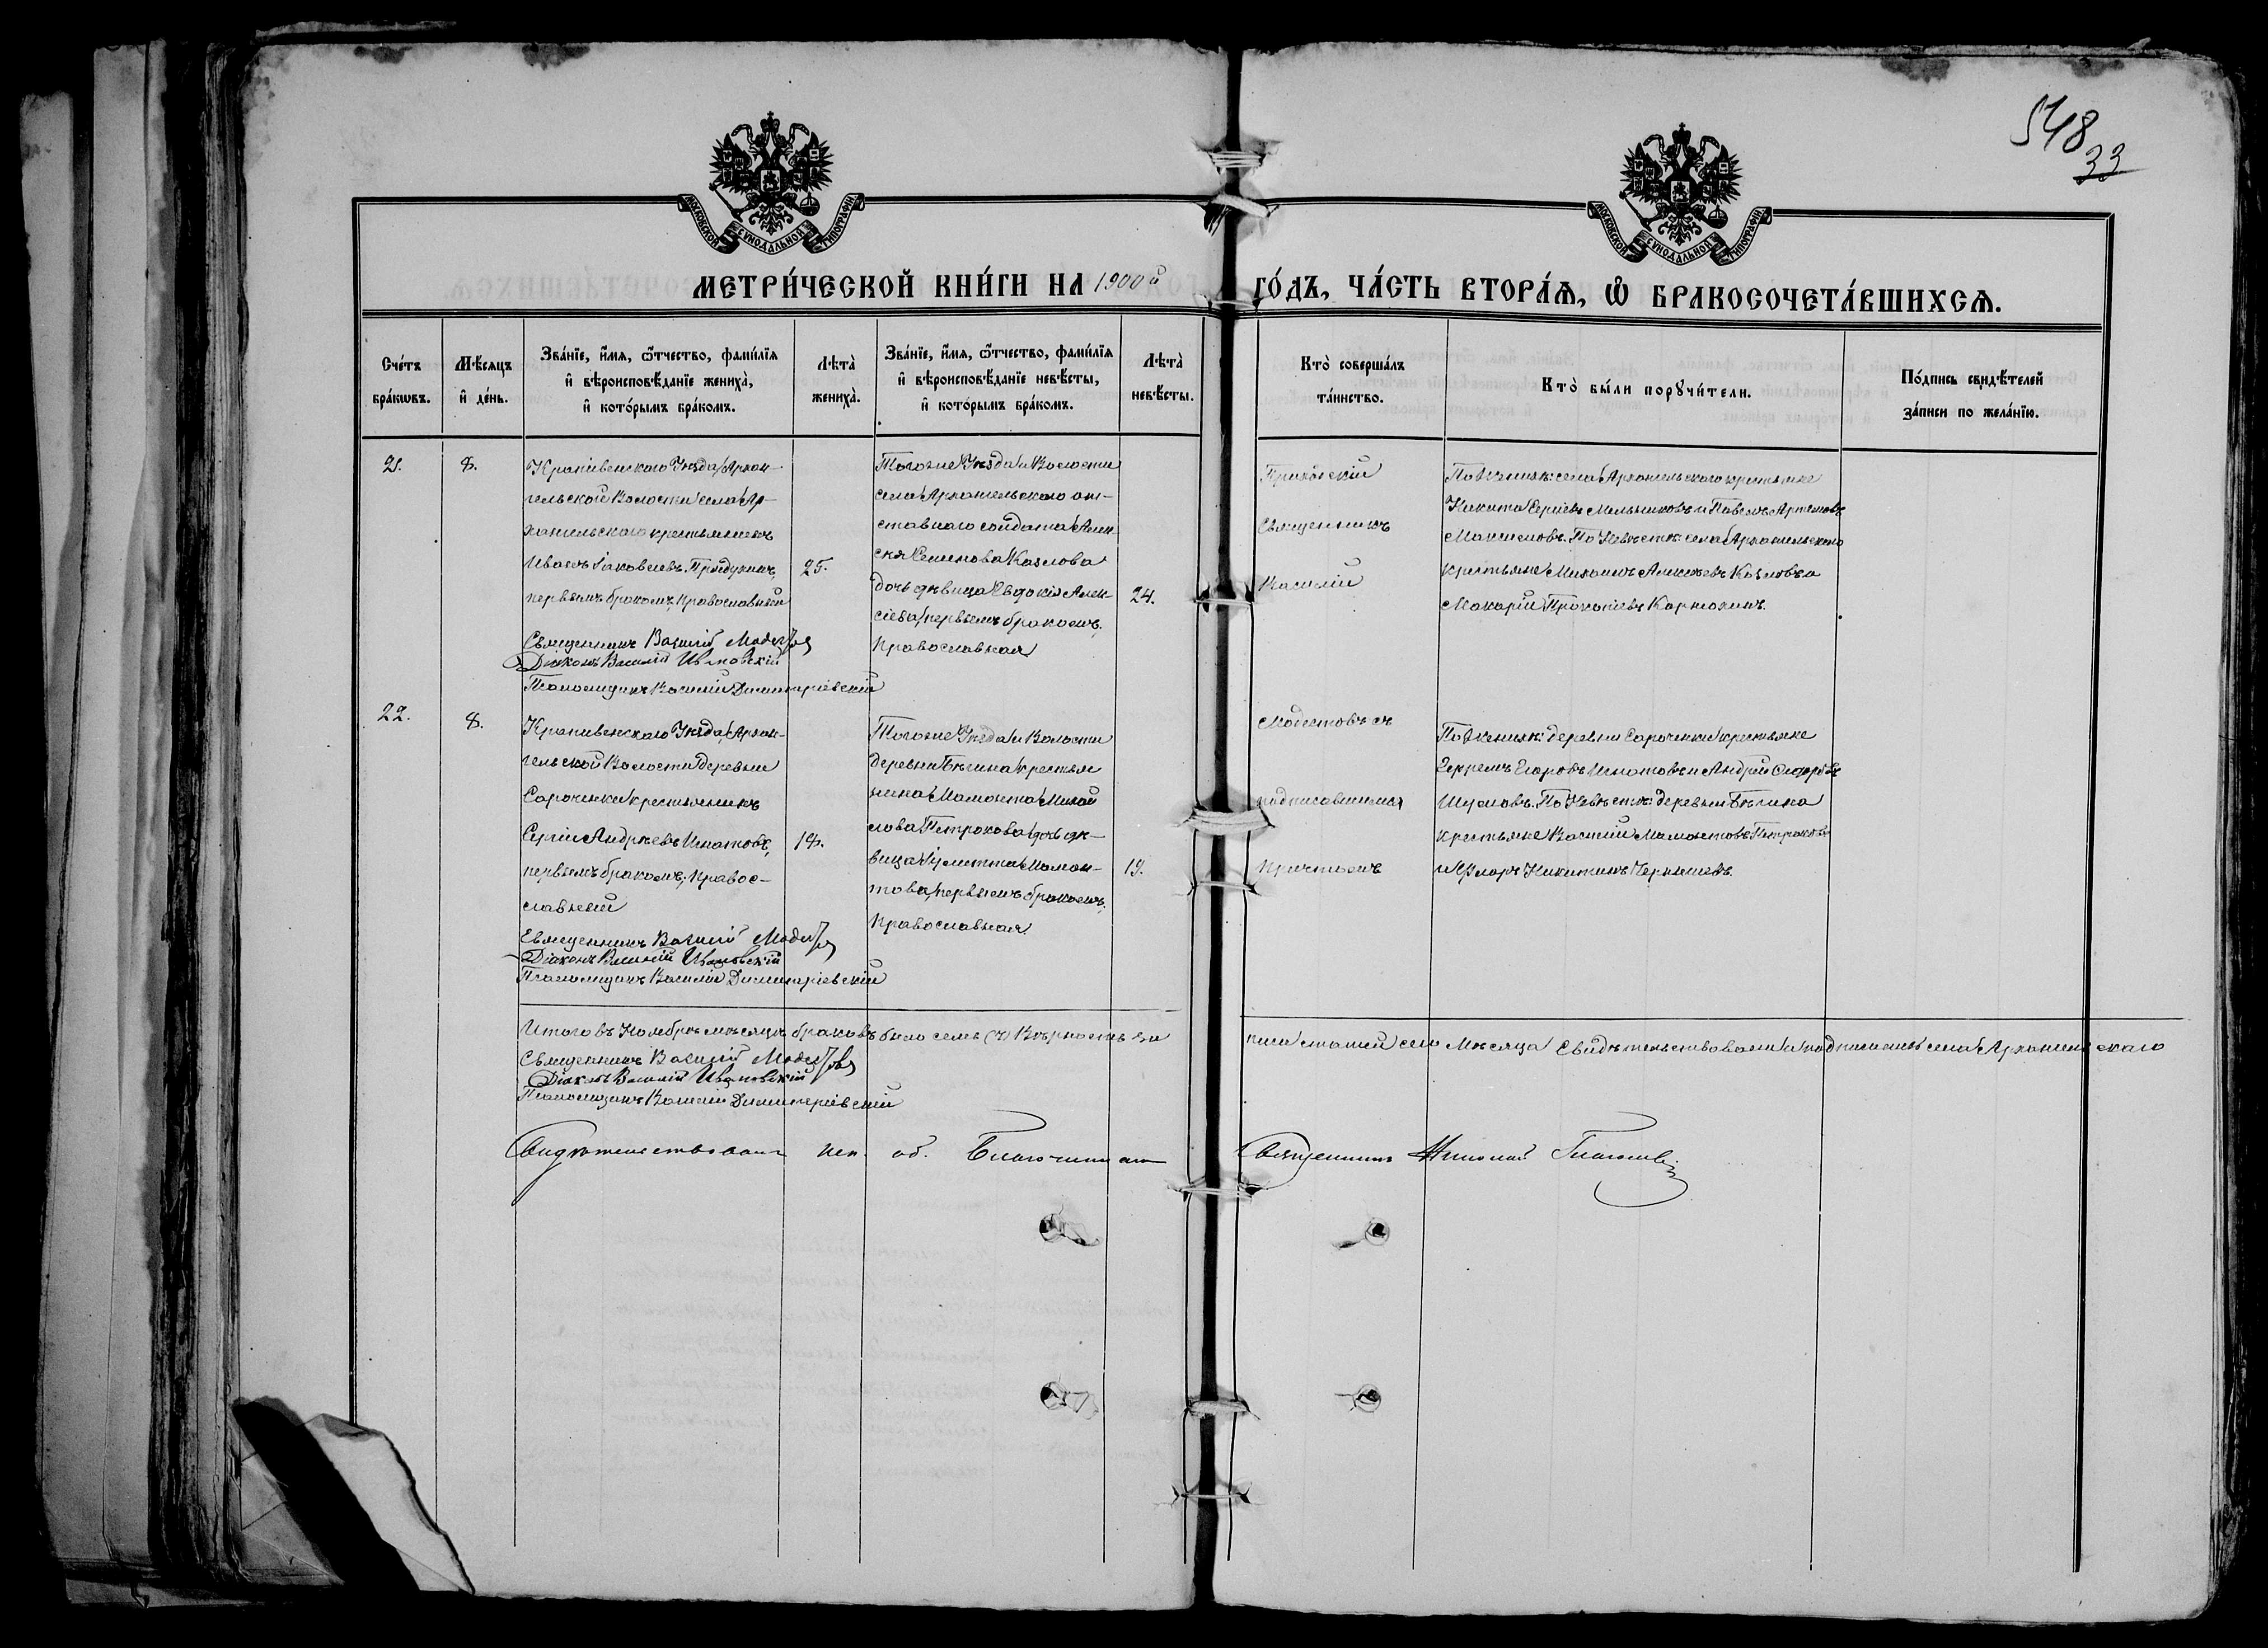 548
33
МОСКОВСКОЙ СУНОДАЛЬНОЙ ТИПОГРАФІИ
МОСКОВСКОЙ СУНОДАЛЬНОЙ ТИПОГРАФІИ
МЕТРИ́ЧЕСКОЙ КНИ́ГИ НА 1900й ГО́ДЪ, ЧА́СТЬ ВТОРА́Ѧ, Ѽ БРАКОСОЧЕТА́ВШИХСѦ.
Сче́тъ бра́кѡвъ.
Мѣ́сяцъ и҆ де́нь.
Зва́нїе, и҆́мя, ѻ҆́тчество, фами́лїя и҆ вѣроисповѣ́данїе жениха̀, и҆ кото́рымъ бра́комъ.
Лѣта̀ жениха̀.
Зва́нїе, и҆́мя, ѻ҆́тчество, фами́лїя и҆ вѣроисповѣ́данїе невѣ́сты, и҆ кото́рымъ бра́комъ.
Лѣта̀ невѣ́сты.
Кто̀ соверша́лъ та́инство.
Кто̀ бы́ли порꙋчи́тели.
По́дпись свидѣ́телей за́писи по жела́нїю.
21.
8.
Крапивенскаго Уѣзда, Архан-
гельской Волости села Ар-
хангельскаго крестьянинъ
Иванъ Іаковлевъ
первымъ бракомъ, православный
25.
Священникъ Василій Модестовъ
Діаконъ Василій Ивановскій
Псаломщикъ Василій Димитріевскій
Тогоже Уѣзда и Волости
села Архангельскаго от-
ставнаго солдата Алек-
сѣя Семенова Козлова
дочь дѣвица Евдокія Алек-
сіева, первымъ бракомъ,
Православная
24.
Приходскій
Священникъ
Василій
Модестовъ съ
подписавшимся
Причтомъ
По Женихѣ: села Архангельскаго крестьяне
Никита Сергіевъ Мельниковъ и Павелъ Артемовъ
По Невѣстѣ: села Архангельскаго
крестьяне Михаилъ Алексѣевъ Козловъ и
Макарій Прокопіевъ
22.
8.
Крапивенскаго Уѣзда, Архан-
гельской Волости деревни
Сороченки крестьянинъ
Сергій Андреевъ Игнатовъ,
первымъ бракомъ, правос-
славный
18.
Священникъ Василій Модестовъ
Діаконъ Василій Ивановскій
Псаломщикъ Василій Димитріевскій
Тогоже Уѣзда и Волости
деревни Бегина крестья
нина Мамонта Михай
лова Петрохова дочь дѣ-
вица Іулитта Мамон-
това, первымъ бракомъ,
Православная
19.
По Женихѣ: деревни Сороченки крестьяне
Егоровъ Игнатовъ и Андрей
По Невѣстѣ: деревни Бегина
крестьяне Василій Мамонтовъ Петроховъ
и Флоръ Никитинъ Чернышевъ
Итого въ Ноябрѣ мѣсяцѣ браковъ было семь (7) Вѣрность за
писи статей сего Мѣсяца Свидѣтельствовали и подписались села Архангельскаго
Священникъ Василій Модестовъ
Діаконъ Василій Ивановскій
Псаломщикъ Василій Димитріевскій
Свидѣтельствовалъ исп. об. Благочиннаго Священникъ Николай